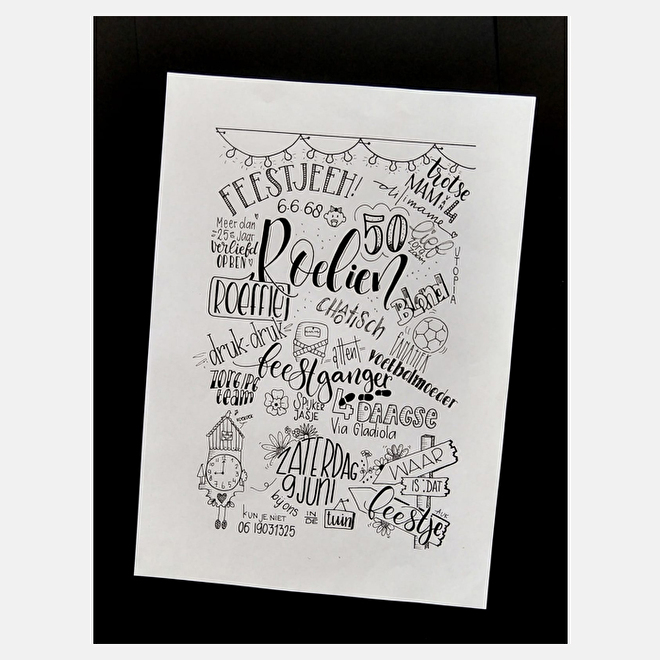 FEESTJEEH!
trotse
MAM VAN 4
olijmamé
6-6-68
50
Meer dan
25 jaar
verliefd
OP BEN
Roelien
lief
UTOPIA
ROEFFIEJ
Blond
CHAOTisch
druk-druk
attent
FANATIEK
voetbalmoeder
feestganger
ZORG/PG
team
SPIJKER
JASJE
4DAAGSE
Via Gladiola
ZATERDAG
9 JUNI
bij ons
IN
DE
tuin
WAAR
IS DAT
feestje
KUN JE NIET
06 19031325